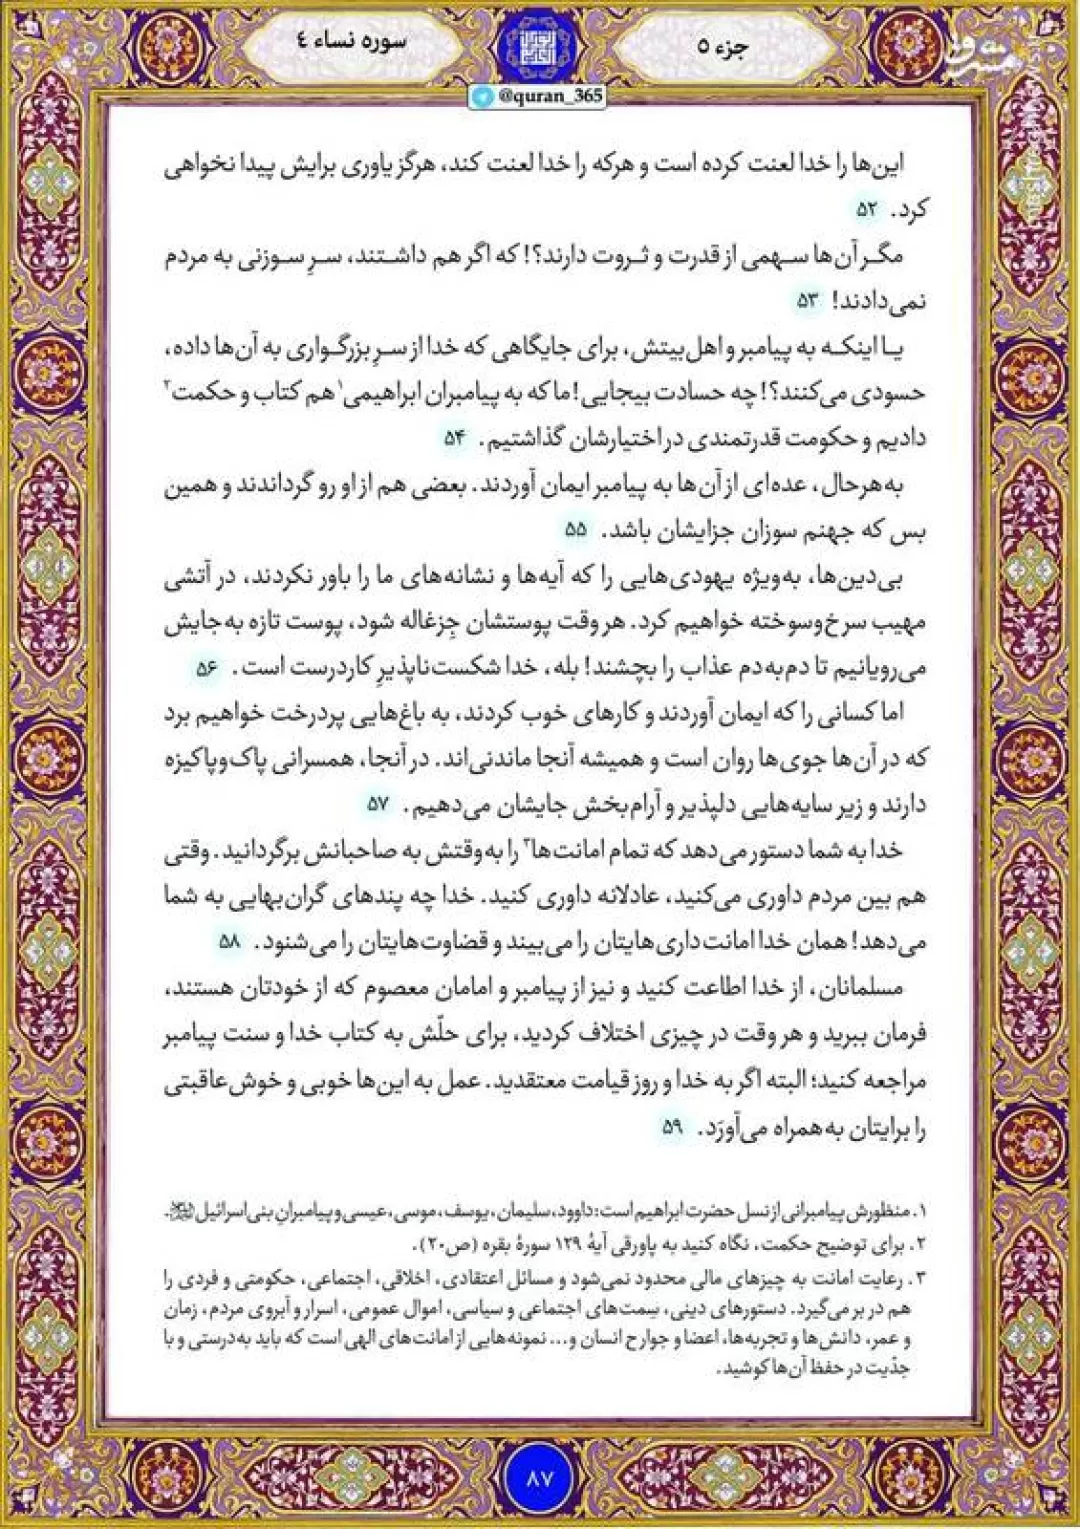 جزء ۵
سوره نساء ۴
@quran_365
مشرق
این‌ها را خدا لعنت کرده است و هرکه را خدا لعنت کند، هرگز یاوری برایش پیدا نخواهی
کرد. ۵۲
مگر آن‌ها سهمی از قدرت و ثروت دارند؟! که اگر هم داشتند، سرِ سوزنی به مردم
نمی‌دادند! ۵۳
یا اینکه به پیامبر و اهل‌بیتش، برای جایگاهی که خدا از سرِ بزرگواری به آن‌ها داده،
حسودی می‌کنند؟! چه حسادت بیجایی! ما که به پیامبران ابراهیمی۱ هم کتاب و حکمت۲
دادیم و حکومت قدرتمندی در اختیارشان گذاشتیم. ۵۴
به‌هرحال، عده‌ای از آن‌ها به پیامبر ایمان آوردند. بعضی هم از او رو گرداندند و همین
بس که جهنم سوزان جزایشان باشد. ۵۵
بی‌دین‌ها، به‌ویژه یهودی‌هایی را که آیه‌ها و نشانه‌های ما را باور نکردند، در آتشی
مهیب سرخ‌وسوخته خواهیم کرد. هر وقت پوستشان جِزغاله شود، پوست تازه به‌جایش
می‌رویانیم تا دم‌به‌دم عذاب را بچشند! بله، خدا شکست‌ناپذیرِ کاردرست است. ۵۶
اما کسانی را که ایمان آوردند و کارهای خوب کردند، به باغ‌هایی پردرخت خواهیم برد
که در آن‌ها جوی‌ها روان است و همیشه آنجا ماندنی‌اند. در آنجا، همسرانی پاک‌وپاکیزه
دارند و زیر سایه‌هایی دلپذیر و آرام‌بخش جایشان می‌دهیم. ۵۷
خدا به شما دستور می‌دهد که تمام امانت‌ها۳ را به‌وقتش به صاحبانش برگردانید. وقتی
هم بین مردم داوری می‌کنید، عادلانه داوری کنید. خدا چه پندهای گران‌بهایی به شما
می‌دهد! همان خدا امانت‌داری‌هایتان را می‌بیند و قضاوت‌هایتان را می‌شنود. ۵۸
مسلمانان، از خدا اطاعت کنید و نیز از پیامبر و امامان معصوم که از خودتان هستند،
فرمان ببرید و هر وقت در چیزی اختلاف کردید، برای حلّش به کتاب خدا و سنت پیامبر
مراجعه کنید؛ البته اگر به خدا و روز قیامت معتقدید. عمل به این‌ها خوبی و خوش‌عاقبتی
را برایتان به‌همراه می‌آورَد. ۵۹
۱. منظورش پیامبرانی از نسل حضرت ابراهیم است: داوود، سلیمان، یوسف، موسی، عیسی و پیامبرانِ بنی‌اسرائیل.
۲. برای توضیح حکمت، نگاه کنید به پاورقی آیهٔ ۱۲۹ سورهٔ بقره (ص۲۰).
۳. رعایت امانت به چیزهای مالی محدود نمی‌شود و مسائل اعتقادی، اخلاقی، اجتماعی، حکومتی و فردی را
هم در بر می‌گیرد. دستورهای دینی، سِمت‌های اجتماعی و سیاسی، اموال عمومی، اسرار و آبروی مردم، زمان
و عمر، دانش‌ها و تجربه‌ها، اعضا و جوارح انسان و... نمونه‌هایی از امانت‌های الهی است که باید به‌درستی و با
جدّیت در حفظ آن‌ها کوشید.
۸۷